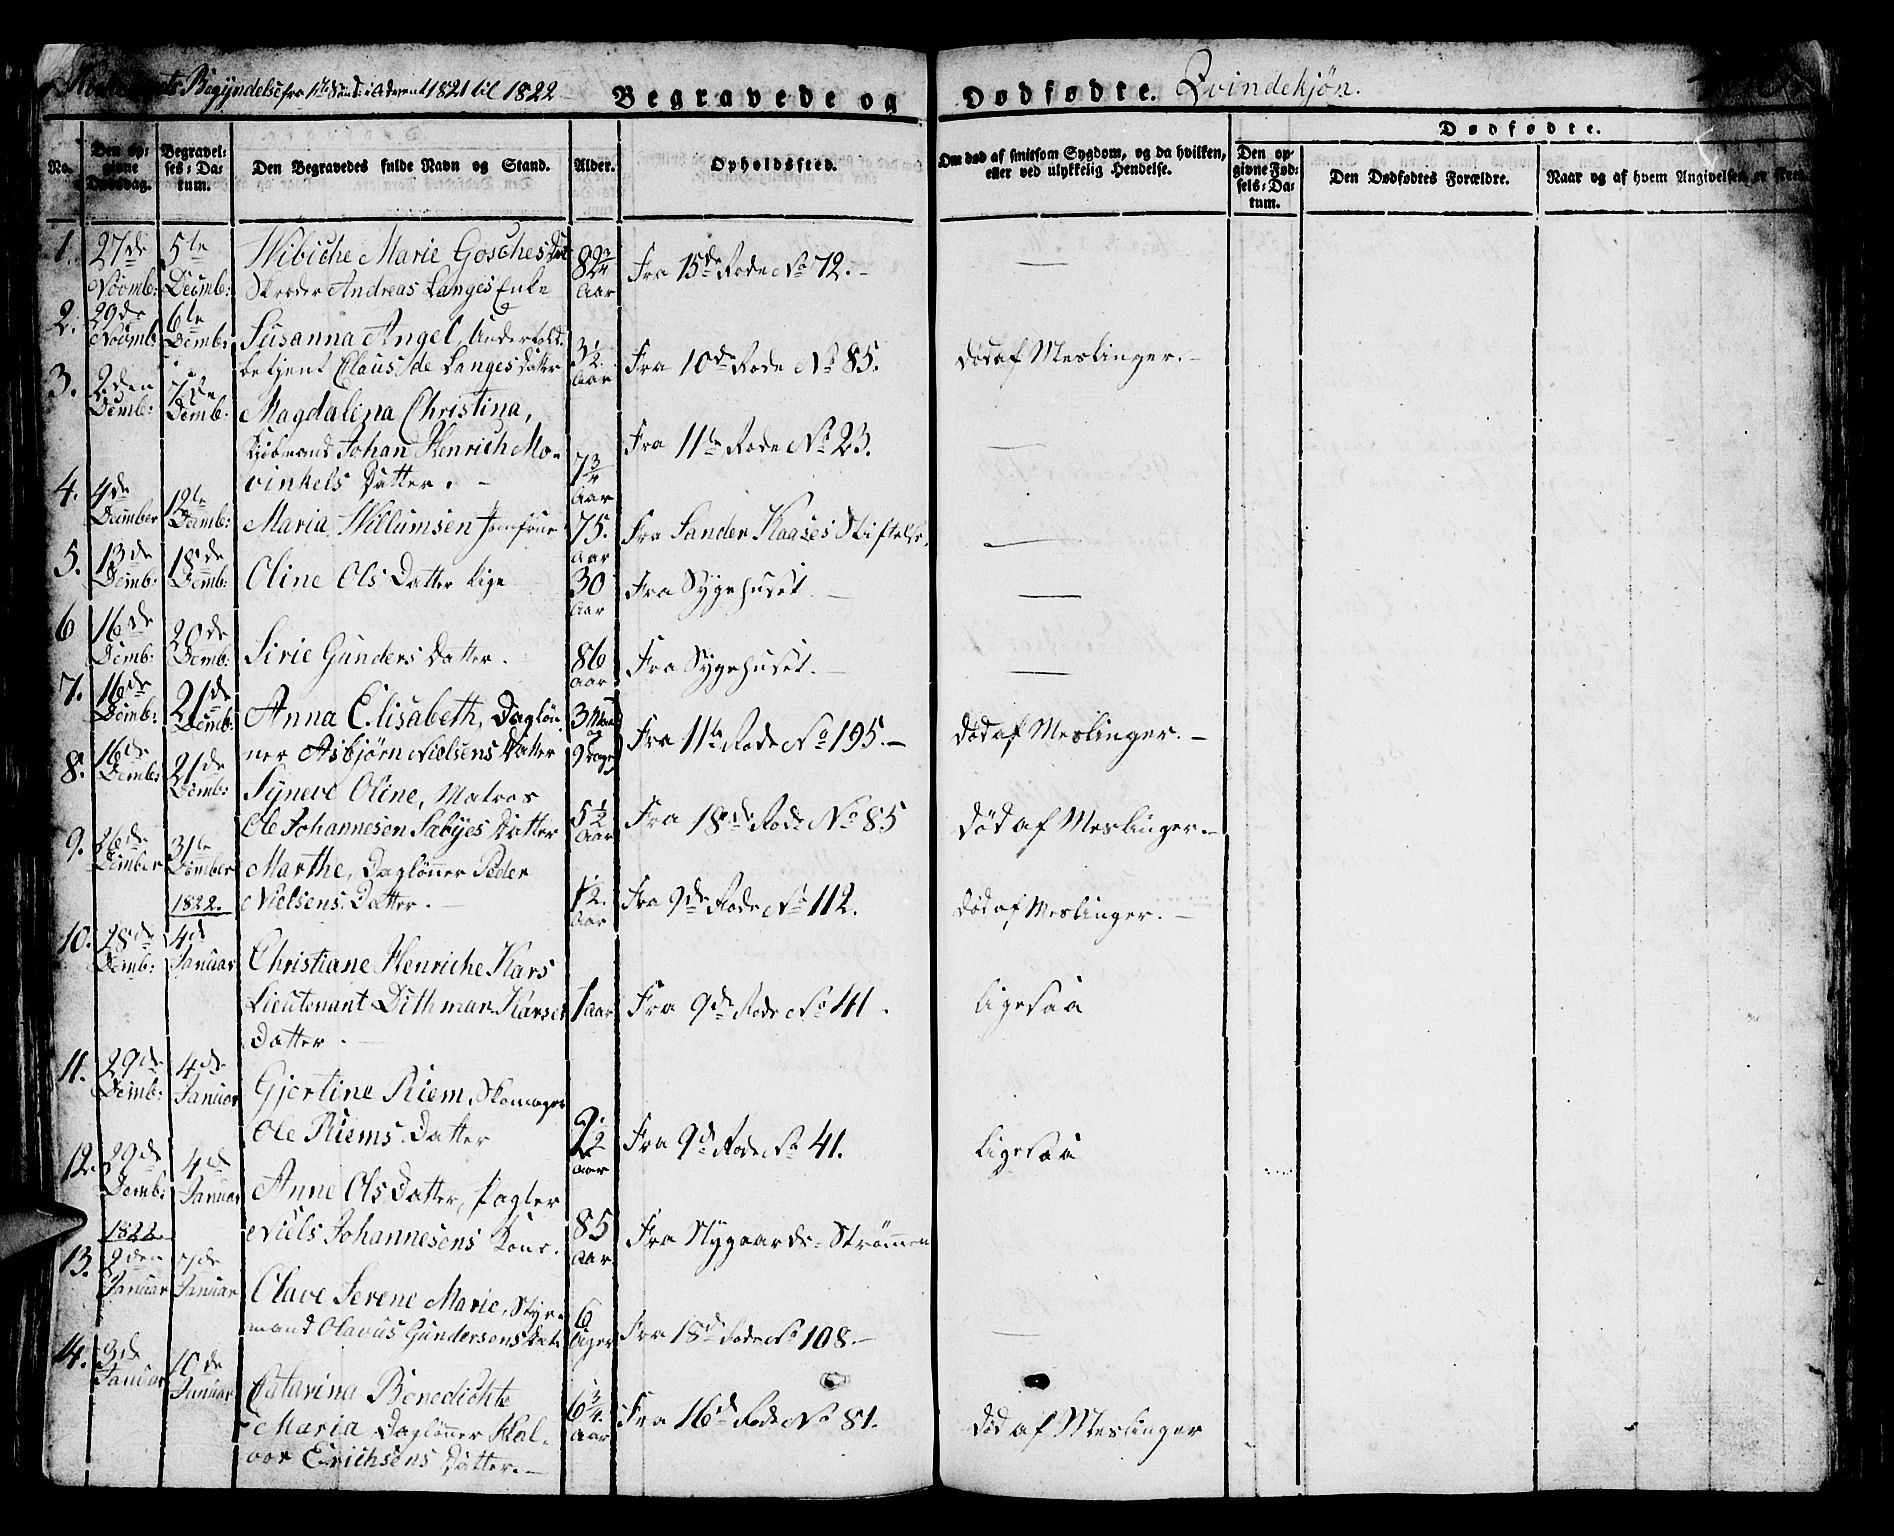 Begyndelse fra 1ste Sönd: i Advent 1821 til 1822
Begravede og Dødfødte. Qvindekjøn.
No.
Den op-
givne
Dødsdag.
Begravel-
ses-Da-
tum.
Den Begravedes fulde Navn og Stand.
Alder.
Opholdssted.
Om død af smitsom Sygdom, og da hvilken,
eller ved ulykkelig Hendelse.
Dødfødte.
Den op-
givne Fød-
sels-Da-
tum.
Den Dødfødtes Forældre.
Naar og af hvem Angivelsen er skeet.
1. 27de Novmb: 5te Decmb: Wibiche Marie Gosches Dat
Skræder Andreas Langes Enke 82 3/4 Aar Fra 15de Rode No 72. -
2. 29de Novmb: 6te Decmb: Susanna Angel, Underfold-
betjent Claus de Langes Datter 3 1/2 Aar Fra 10de Rode No 85. Død af Meslinger. -
3. 2den Decmb: 7de Decmb: Magdalina Christina,
Kjöbmand Johan Henrich Mo-
vinkels Datter. - 7 3/4 Aar Fra 11te Rode No 23.
4. 4de December 12te Decmb: Maria Willumsen Jomfrue 75. Aar Fra Sander Kaases Stiftelse.
5. 13de Decmb: 18de Decmb: Oline Ols Datter Pige 30 Aar Fra Sygehuset -
6 16de Decmb: 20de Decmb: Sirie Gunders Datter. 86 Aar Fra Sygehuset. -
7. 16de Decmb: 21de Decmb: Anna Elisabeth, Daglön-
ner Asbjørn Nielsens Datter 3 Maan og 9 Dage Fra 11te Rode No 195. - Död af Meslinger. -
8. 16de Decmb: 21de Decmb: Syneve Oline, Matros
Ole Johannesen Sæbyes Datter 5 1/2 Aar Fra 18de Rode No 85 Död af Meslinger. -
9. 26de December 31te December Marthe, Daglönner Peder
Nielsens Datter. - 1/2. Aar Fra 9de Rode No 112. Död af Meslinger. -
1822.
10. 28de Decmb: 4d Januar Christiane Henriche Kars
Lieutenant Dithmar Karses
Datter. - 1 Aar Fra 9de Rode No 41. ligesaa
11. 29de Decmb: 4de Januar Gjertine Riem, Skomager
Ole Riems Datter 2 1/2 Aar Fra 9d Rode No 41. ligesaa
12. 29de Decmb: 4de Januar Anne Ols Datter,
Niels Johannesens Kone. 85 Aar Fra Nygaards-Strömmen
1822.
13. 2den Januar 7de Januar Olave Serene Marie, Styr-
mand Olavus Gundersens Datt 6 Uger Fra 18d Rode No 108 -
14. 3de Januar 10de Januar Catarina Benedichte
Maria Daglönner Hal-
vor Erichsens Datter. - 6 3/4. Aar Fra 16d Rode No 81. Död af Meslinger